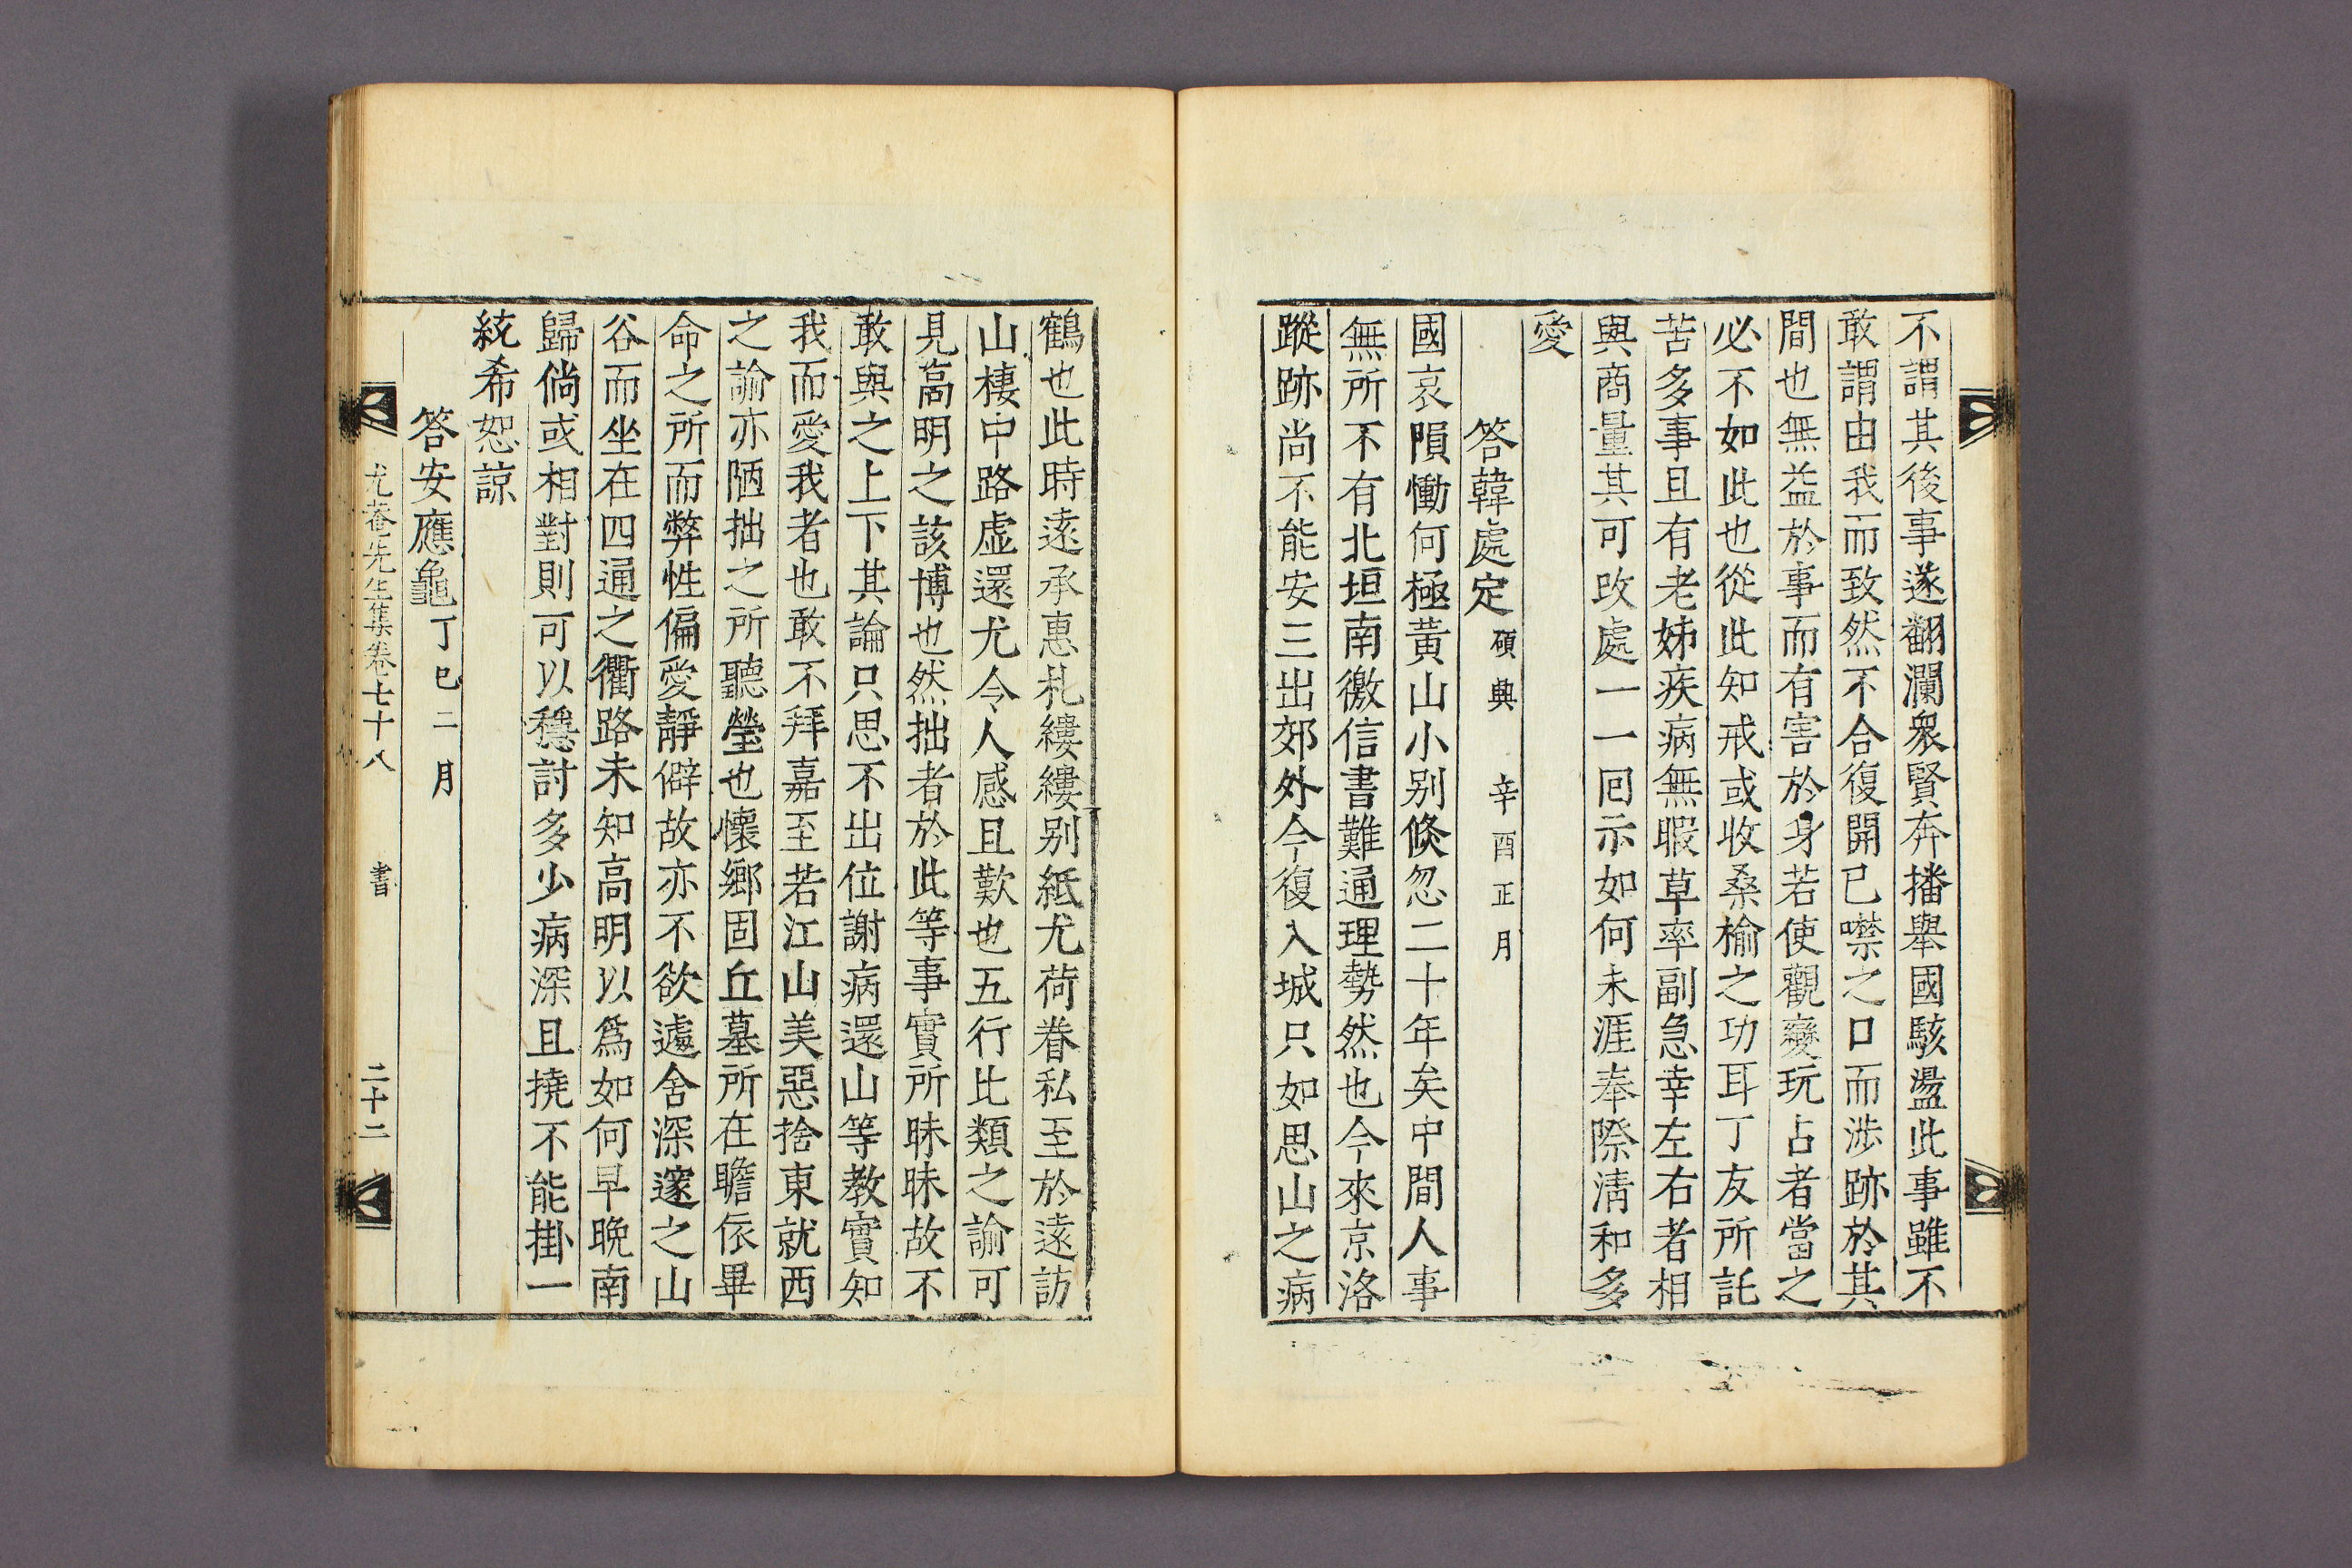 不謂其後事遂翻瀾衆賢奔播舉國駭盪此事雖不
敢謂由我而致然不合復開已噤之口而涉跡於其
間也無益於事而有害於身若使觀變玩占者當之
必不如此也從此知戒或收桑榆之功耳丁友所託
苦多事且有老姊疾病無暇草率副急幸左右者相
與商量其可改處一一回示如何未涯奉際淸和多
愛
答韓處定 碩興 辛酉正月
國哀隕慟何極黃山小別倐忽二十年矣中間人事
無所不有北垣南徼信書難通理勢然也今來京洛
蹤跡尙不能安三出郊外今復入城只如思山之病
鶴也此時遠承惠札縷縷別紙尤荷眷私至於遠訪
山棲中路虛還尤令人感且歎也五行比類之諭可
見高明之該博也然拙者於此等事實所昧昧故不
敢與之上下其論只思不出位謝病還山等教實知
我而愛我者也敢不拜嘉至若江山美惡捨東就西
之諭亦陋拙之所聽瑩也懷鄉固丘墓所在瞻依畢
命之所而弊性偏愛靜僻故亦不欲遽舍深邃之山
谷而坐在四通之衢路未知高明以爲如何早晩南
歸倘或相對則可以穩討多少病深且撓不能掛一
統希恕諒
答安應龜 丁巳二月
尤菴先生集卷七十八 書 二十二